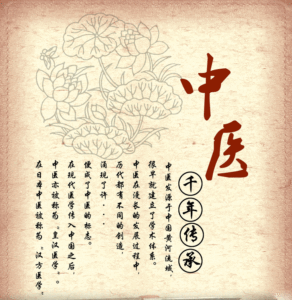 中医
千年传承
中医发源于中国黄河流域，
很早就建立了学术体系。
中医在漫长的发展过程中，
历代都有不同的创造，
涌现了许...
使成了中医的标志。
在现代医学传入中国之后，
中医亦被称为“皇汉医学”。
在日本中医被称为“汉方医学”。